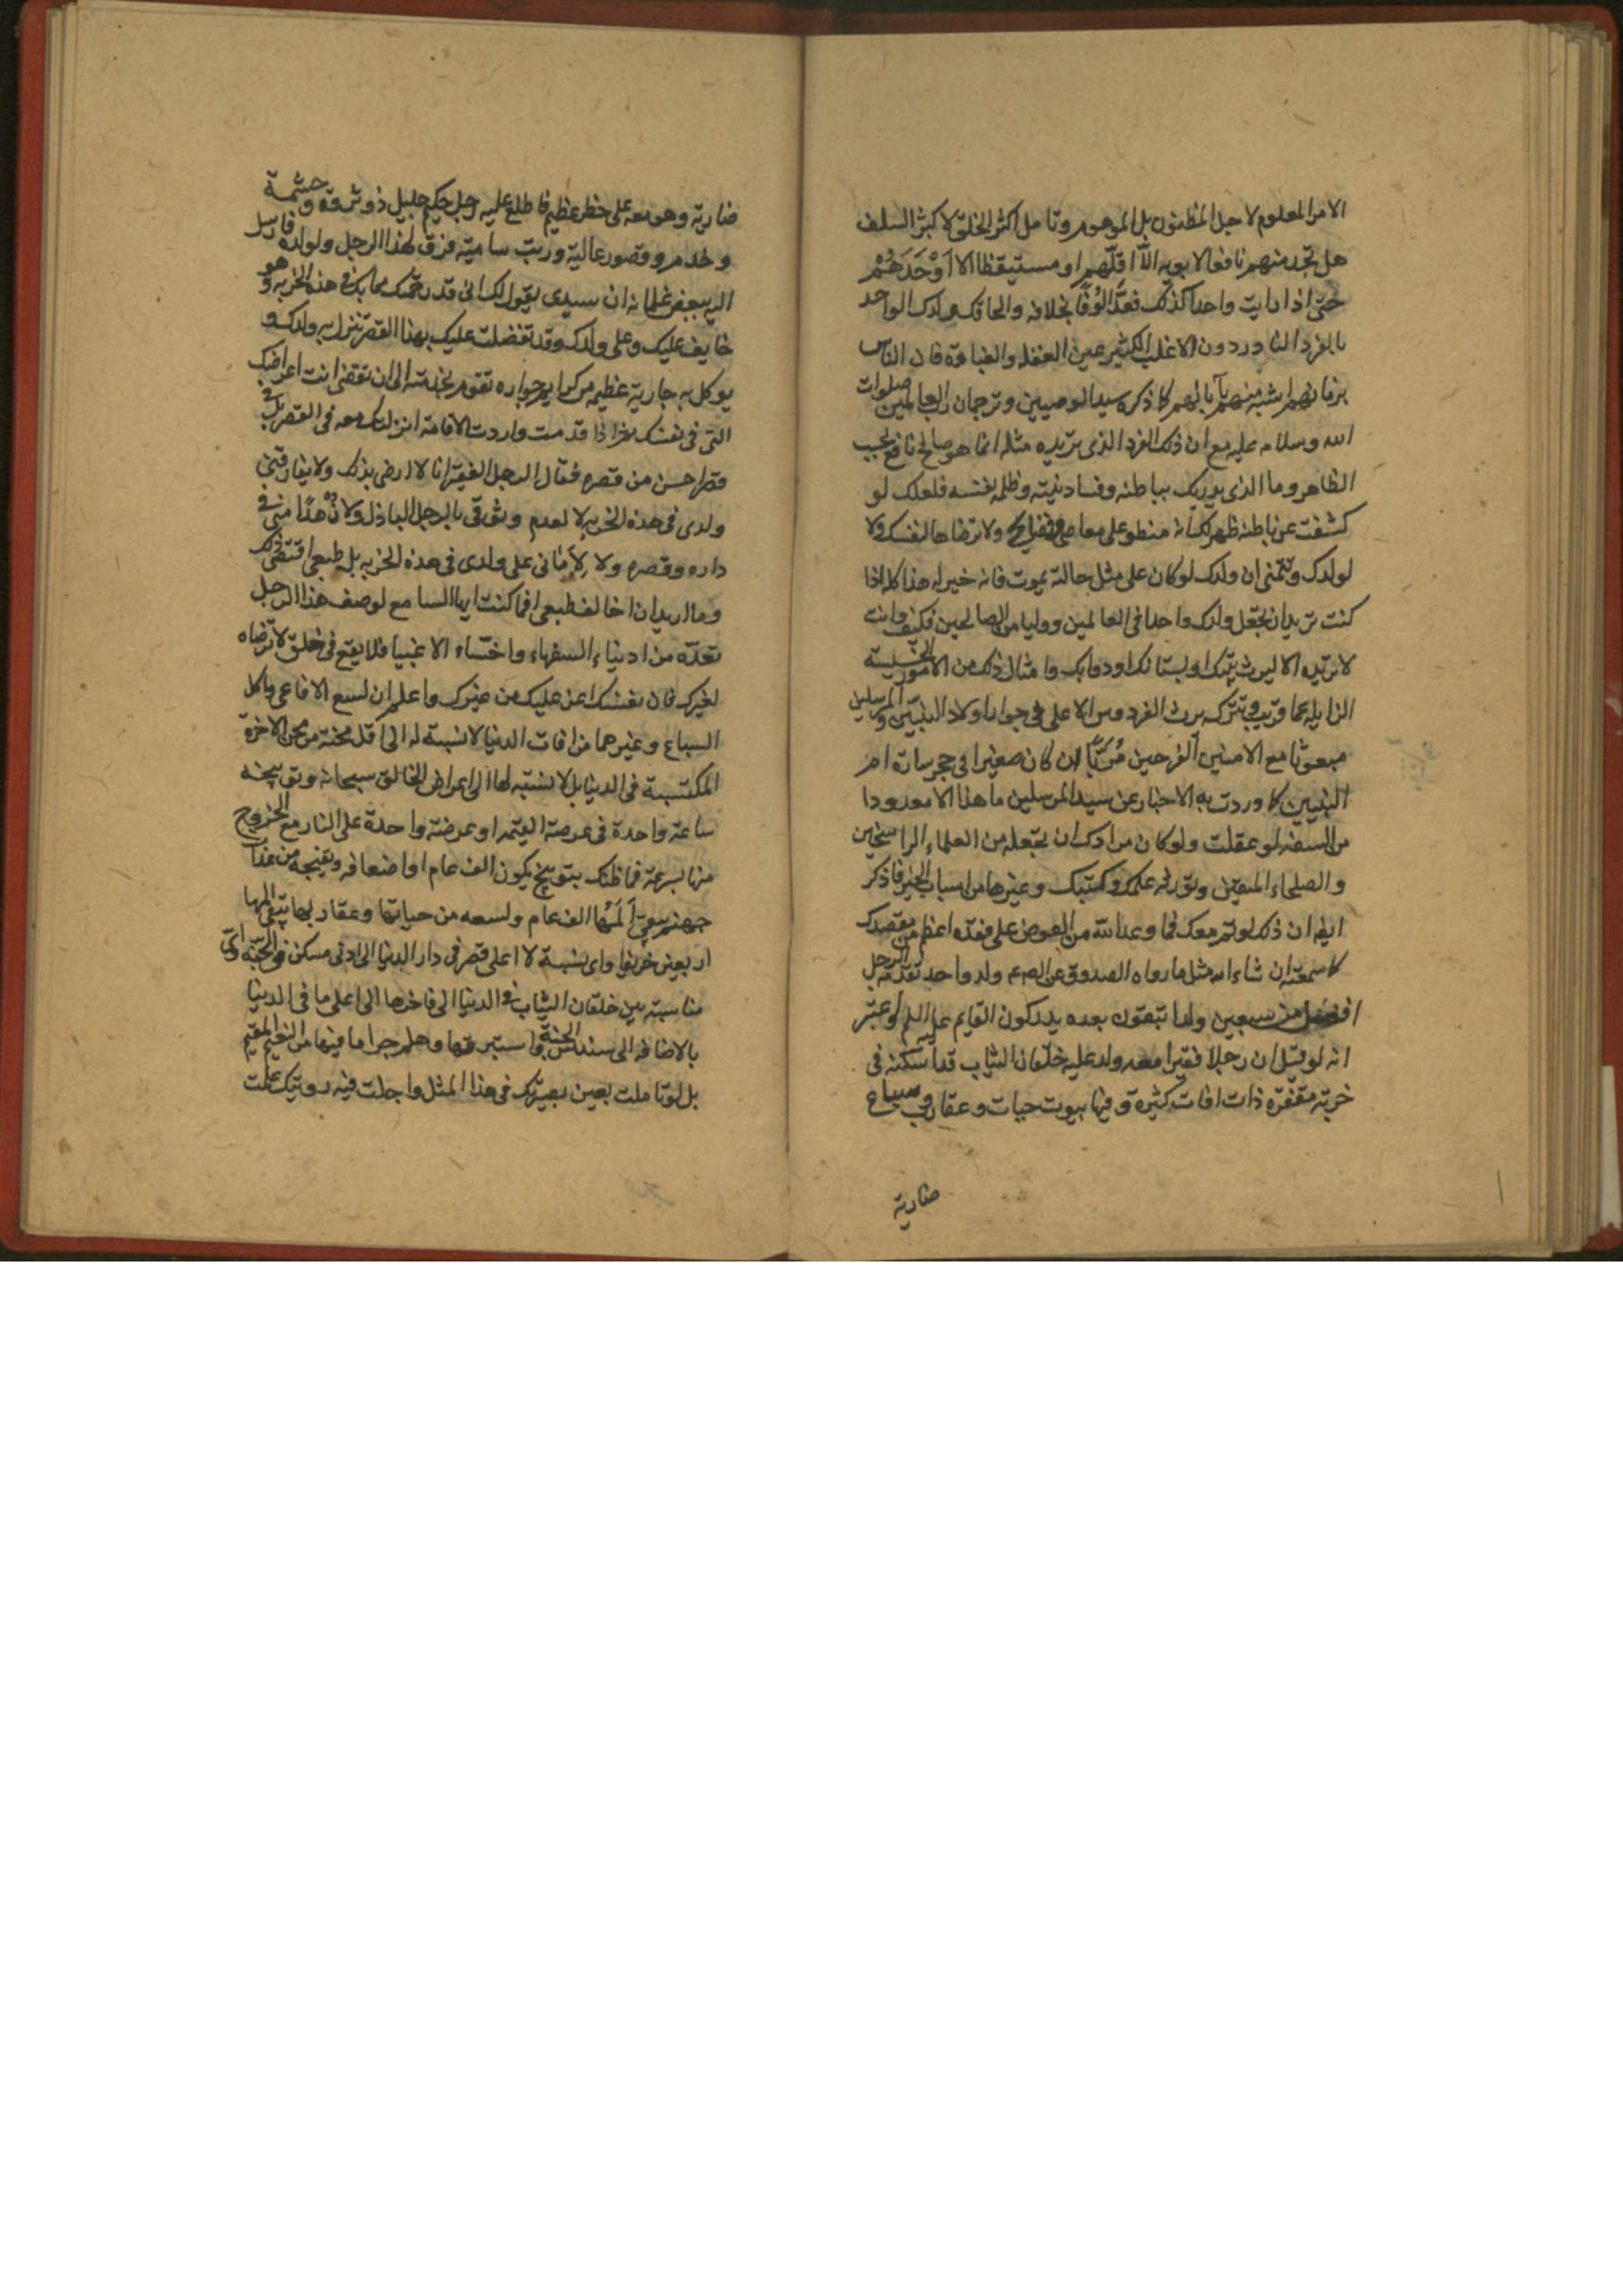 الامر المعلوم لاجل المظنون بل الموهوم وتامل اكثر الخلق لاكبثر السلف
هل تجد منهم نافعا لابويه الّا اقلّهم او مستيقظا الا اَوْحَدَهُمْ
حتى اذا رايت واحدا كذلك فعدّ اُلوُفًا بخلافه والحاقك ولدك الواحد
بالفرد النادر دون الاغلب الكثير عين الغفله والغباوة فان الناس
بزمانهم اشبه منهم بآبائهم كما ذكره سيد الوصيين وترجمان رب العالمين صلوات
الله وسلامه عليه مع ان ذلك الفرد الذى تريده مثله انما هو صالح نافع بحسب
الظاهر وما الذى يدريك بباطنه وفساد نيته وظلمه لنفسه فلعلك لو
كشفت عن باطنه ظهر لك انه منطو على معاص وفضايح ولا ترضاها لنفسك ولا
لولدك وتتمنى ان ولدك لو كان على مثل حالته يموت فانه خير له هذا كله اذا
كنت تريد ان تجعل ولدك واحدا فى العالمين ووليا من الصالحين فكيف وانت
لا تريده الا ليرث بيتك او بستانك او دوابك وامثال ذلك من الامور الخسيسة
الزايله عما قريب وتترك يرث الفردوس الاعلى فى جوار اولاد النبيّين والمرسلين
مبعوثا مع الامنين الفرحين مُرَبًّا ان كان صغيرا فى حجر سارة ام
النبيين كما وردت به الاخبار عن سيد المرسلين ما هذا الا معدودا
من السفه لو عقلت ولو كان مرادك ان تجعله من العلماء الراسخين
والصلحاء المتقين وتورثه علمك وكتبك وغيرها من اسباب الخير فاذكر
ايضا ان ذلك لو تم معك فما وعد الله من العوض على فقده اعظم من مقصدك
كما سمعته ان شاء الله مثل ما رواه الصدوق عن الصم ولد واحد يقدمه الرجل
افضل من سبعين ولدا تبقون بعده يدركون القايم عليه السلم واعتبر
انه لو قيل ان رجلا فقيرا معه ولد عليه خلقان الثياب قد اسكنه فى
خربة مقفرة ذات افات كثيرة وفيها بيوت حيات وعقارب وسباع
ضارية
ضارية وهو معه على خطر عظيم فاطلع عليه رجل حكيم جليل ذو ثروة وحشمة
وخدم وقصور عالية ورتب سامية فرق لهذا الرجل ولولده فارسل
اليه ببعض غلمانه ان سيدى يقول لك انى قد رحمتك مما بك فى هذه الخربه وهو
خايف عليك وعلى ولدك وقد تفضلت عليك بهذا القصر تنزل به ولدك و
يوكل به جارية عظيمه من كرايم جواره تقوم بخدمته الى ان تقضى انت اغراضك
التى فى نفسك ثم اذا قدمت واردت الاقامة انزلتك معه فى القصر بل فى
قصر احسن من قصره فقال الرجل الفقير انا لا ارضى بذلك ولا يفارقنى
ولدى فى هذه الخربه لا لعدم وثوقى بالرجل الباذل ولا زُهدًا منى فى
داره وقصره ولا لِاَمانى على ولدى فى هذه الخربه بل طبعى اقتضى ذلك
وما اريد ان اخالف طبعى افما كنت ايها السامع لوصف هذا الرجل
تعدّه من ادنياء السفهاء واخسّاء الاغبيا فلا يقع فى خلق لا ترضاه
لغيرك فان نفسك اعز عليك من غيرك واعلم ان لسع الافاعى واكل
السباع وغيرهما من افات الدنيا لا نسبة له الى اقل محنة من محن الاخرة
المكتسبة فى الدنيا بل لا نسبة لها الى اعراض الخالق سبحانه وتوبيخه
ساعة واحدة فى عرصة القيمه او عرضة واحدة على النار مع الخروج
منها بسرعة فما ظنك بتوبيخ يكون الف عام او اضعافه ونفخه من عذاب
جهنم يبقى اَلَمُها الف عام ولسعه من حياتها وعقاربها يبقى المها
اربعين خريفا واى نسبة لا اعلى قصر فى دار الدنيا الى ادنى مسكن فى الجنّه واى
مناسبة بين خلقان الثياب فى الدنيا الى فاخرها الى اعلى ما فى الدينا
بالاضافه الى سندس الجنة واستبرقها وهلم جرا ما فيها من النعيم المقيم
بل لو تاملت بعين بصيرتك فى هذا المثل واجلت فيه رويتك علمت